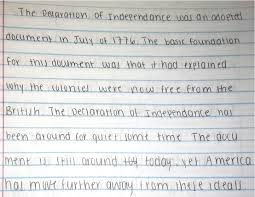 The Declaration of Independance was an adopted
document in July of 1776. The basic foundation
for this document was that it had explained
why the colonies were now free from the
British. The Declaration of Independence has
been around for quiet some time The docu
ment is still around today. yet America
has move further away from these ideals